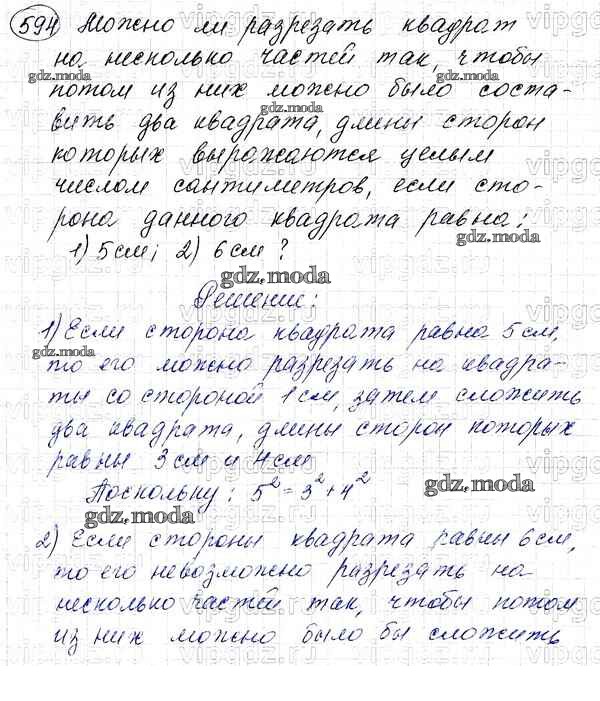 594 Можно ли разрезать квадрат
на несколько частей так, чтобы
потом из них можно было соста-
вить два квадрата, длины сторон
которых выражаются целым
числом сантиметров, если сто-
рона данного квадрата равна:
1) 5 см; 2) 6 см?
Решение:
1) Если сторона квадрата равна 5 см,
то его можно разрезать на квадра-
ты со стороной 1 см, затем сложить
два квадрата, длины сторон которых
равны 3 см и 4 см
Поскольку: 5² = 3² + 4²
2) Если стороны квадрата равны 6 см,
то его невозможно разрезать на
несколько частей так, чтобы потом
из них можно было бы сложить
gdz.moda
gdz.moda
gdz.moda
gdz.moda
gdz.moda
gdz.moda
gdz.moda
gdz.moda
vipgdz.ru